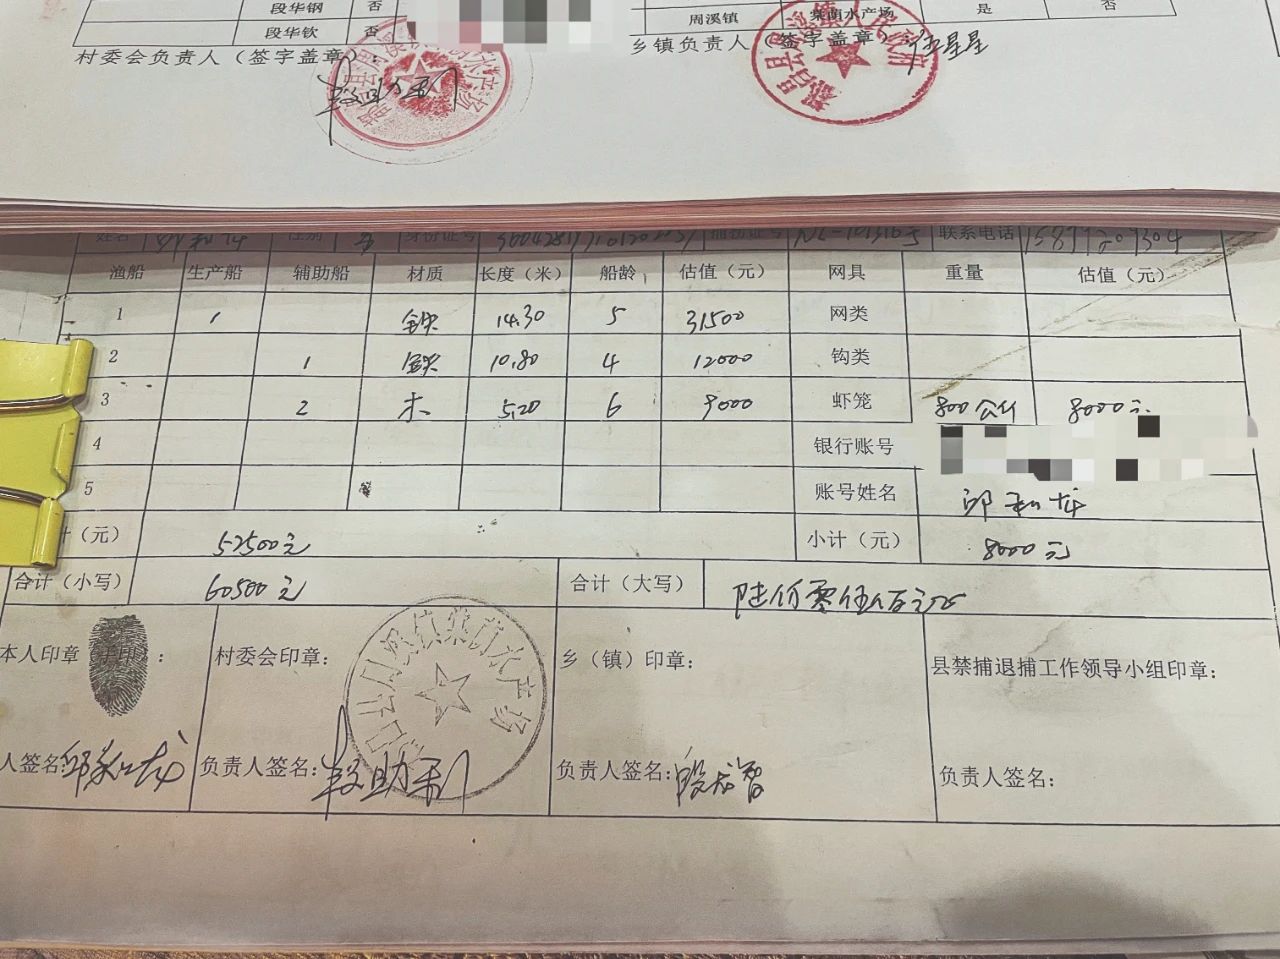 段华钢 否
段华钦 否
周溪镇 莱萌水产场 是 否
村委会负责人（签字盖章）：
乡镇负责人（签字盖章）
姓名 性别 身份证号 捕捞证号 联系电话
渔船 生产船 辅助船 材质 长度（米） 船龄 估值（元） 网具 重量 估值（元）
1 1 铁 14.30 5 31500 网类
2 1 铁 10.80 4 12000 钩类
3 2 木 5.20 6 9000 虾笼 800公斤 8000元
4 银行账号
5 账号姓名 邱和龙
计（元） 52500元 小计（元） 8000元
合计（小写） 60500元 合计（大写） 陆万零伍佰元
本人印章（手印）： 村委会印章： 乡（镇）印章： 县禁捕退捕工作领导小组印章：
人签名: 邱和龙 负责人签名: 段助利 负责人签名: 负责人签名: